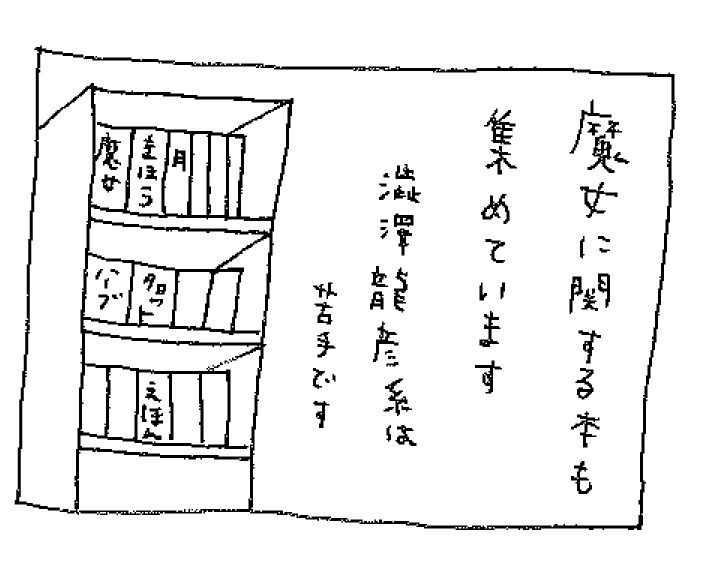 魔女に関する本も
集めています
澁澤龍彦系は
苦手です
魔女
まほう
月
ハーブ
タロット
えほん